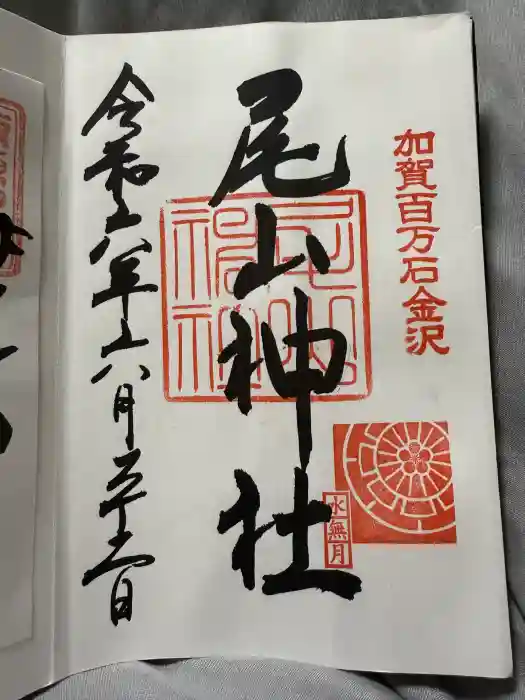 加賀百万石金沢
尾山神社
尾山
神社
水無月
令和六年六月